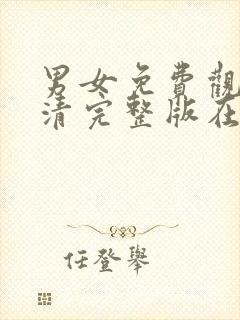 男女免費觀
清完整版在
任登舉